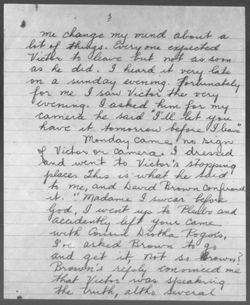 3
me change my mind about a
lot of things. Everyone expected
Victor to leave but not as soon
as he did. I heard it very late
on a sunday evening. Fortunately
for me I saw Victor the very
evening. I asked him for my
camera he said "I'll let you
have it tomorrow before I leave"
Monday came, no sign
of Victor or camera. I dressed
and went to Victor's stopping
place. This is what he said
to me, and David Brown confirmed
it. "Madame I swear before
God, I went up to and
accidently left your Camera
with
I've asked Brown to go
and get it. Not so Brown?
Brown's reply convinced me
that Victor was speaking
the truth, altho several